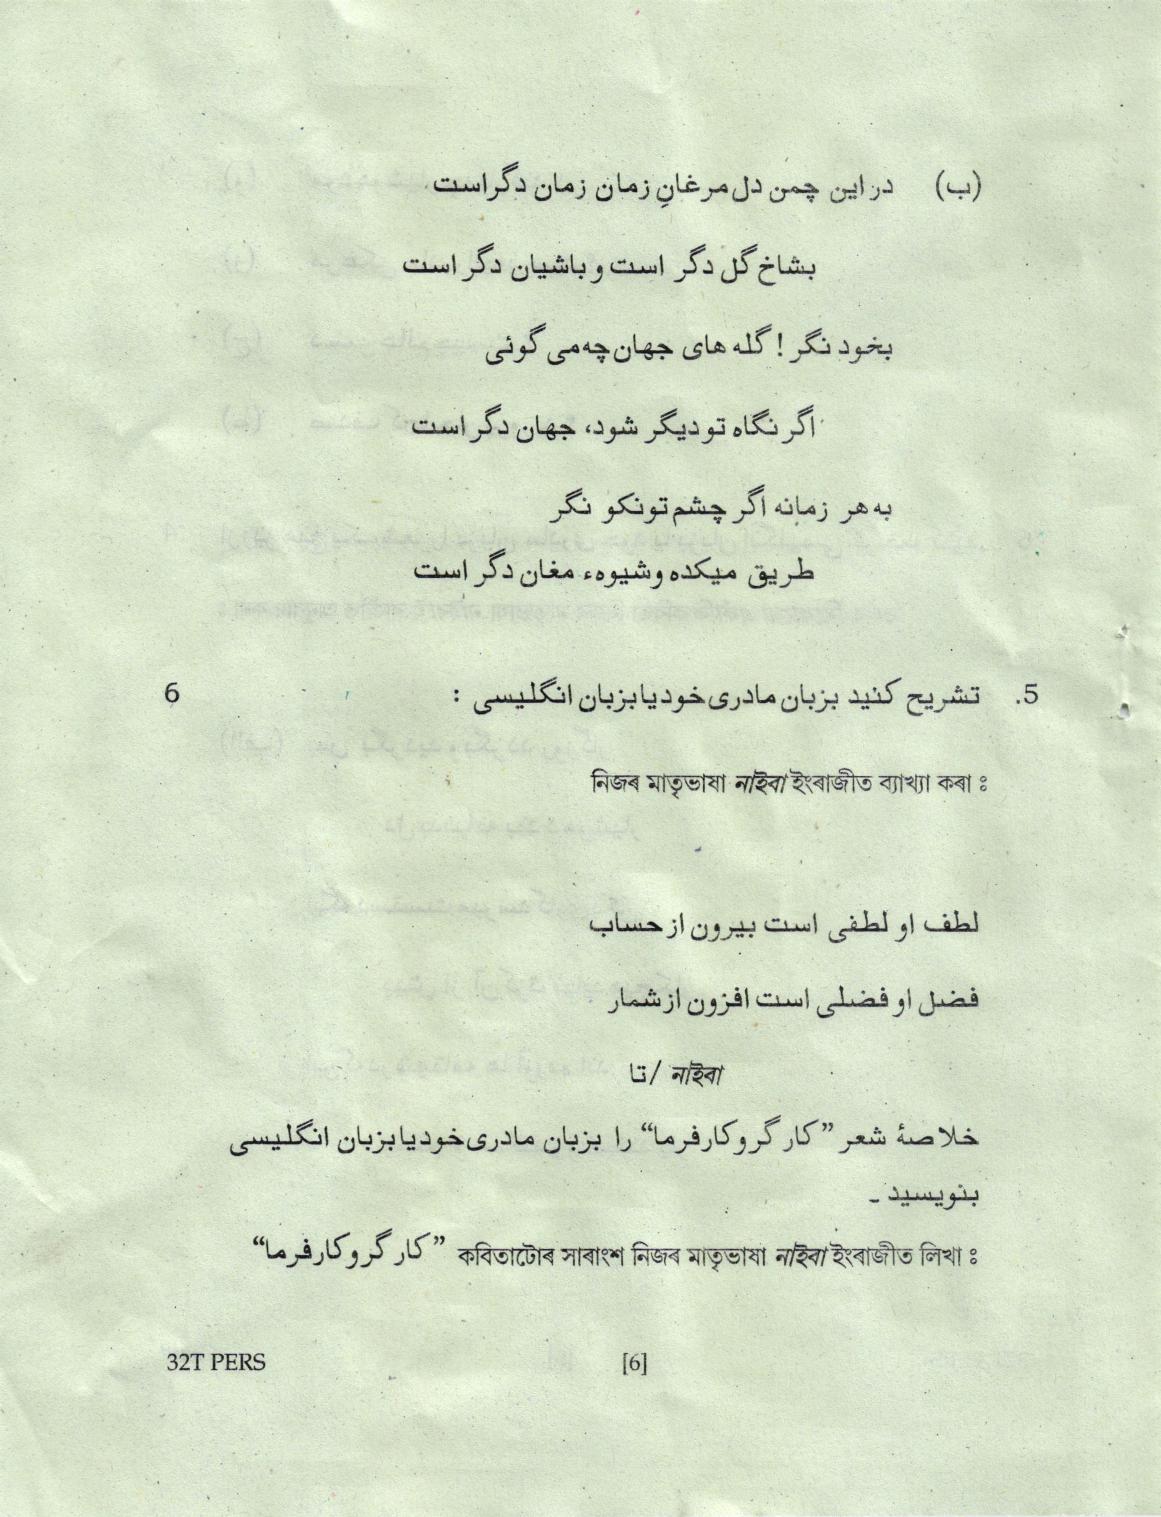 (ب) در این چمن دل مرغانِ زمان زمان دگراست
بشاخ گل دگر است و باشیان دگر است
بخود نگر ! گله های جهان چه می گوئی
اگر نگاه تو دیگر شود، جهان دگر است
به هر زمانه اگر چشم تو نکو نگر
طریق میکده و شیوهء مغان دگر است
5. تشریح کنید بزبان مادری خود یا بزبان انگلیسی : 6
নিজৰ মাতৃভাষা নাইবা ইংৰাজীত ব্যাখ্যা কৰা ঃ
لطف او لطفی است بیرون از حساب
فضل او فضلی است افزون از شمار
تا / নাইবা
خلاصۂ شعر ”کارگر و کارفرما“ را بزبان مادری خود یا بزبان انگلیسی
بنویسید ۔
”کارگر و کارفرما“ কবিতাটোৰ সাৰাংশ নিজৰ মাতৃভাষা নাইবা ইংৰাজীত লিখা ঃ
32T PERS [6]